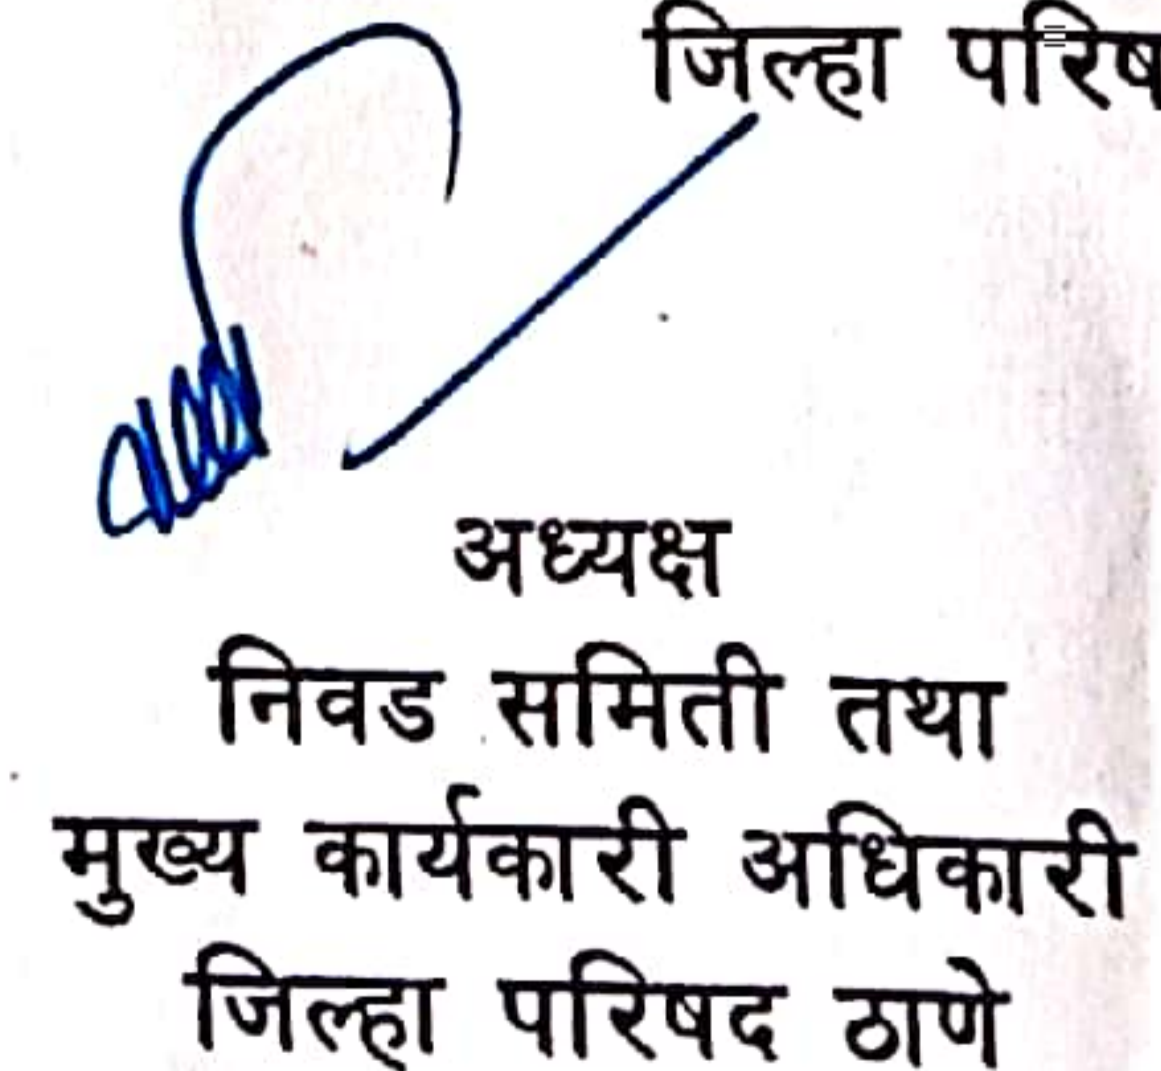 जिल्हा परिष
अध्यक्ष
निवड समिती तथा
मुख्य कार्यकारी अधिकारी
जिल्हा परिषद ठाणे